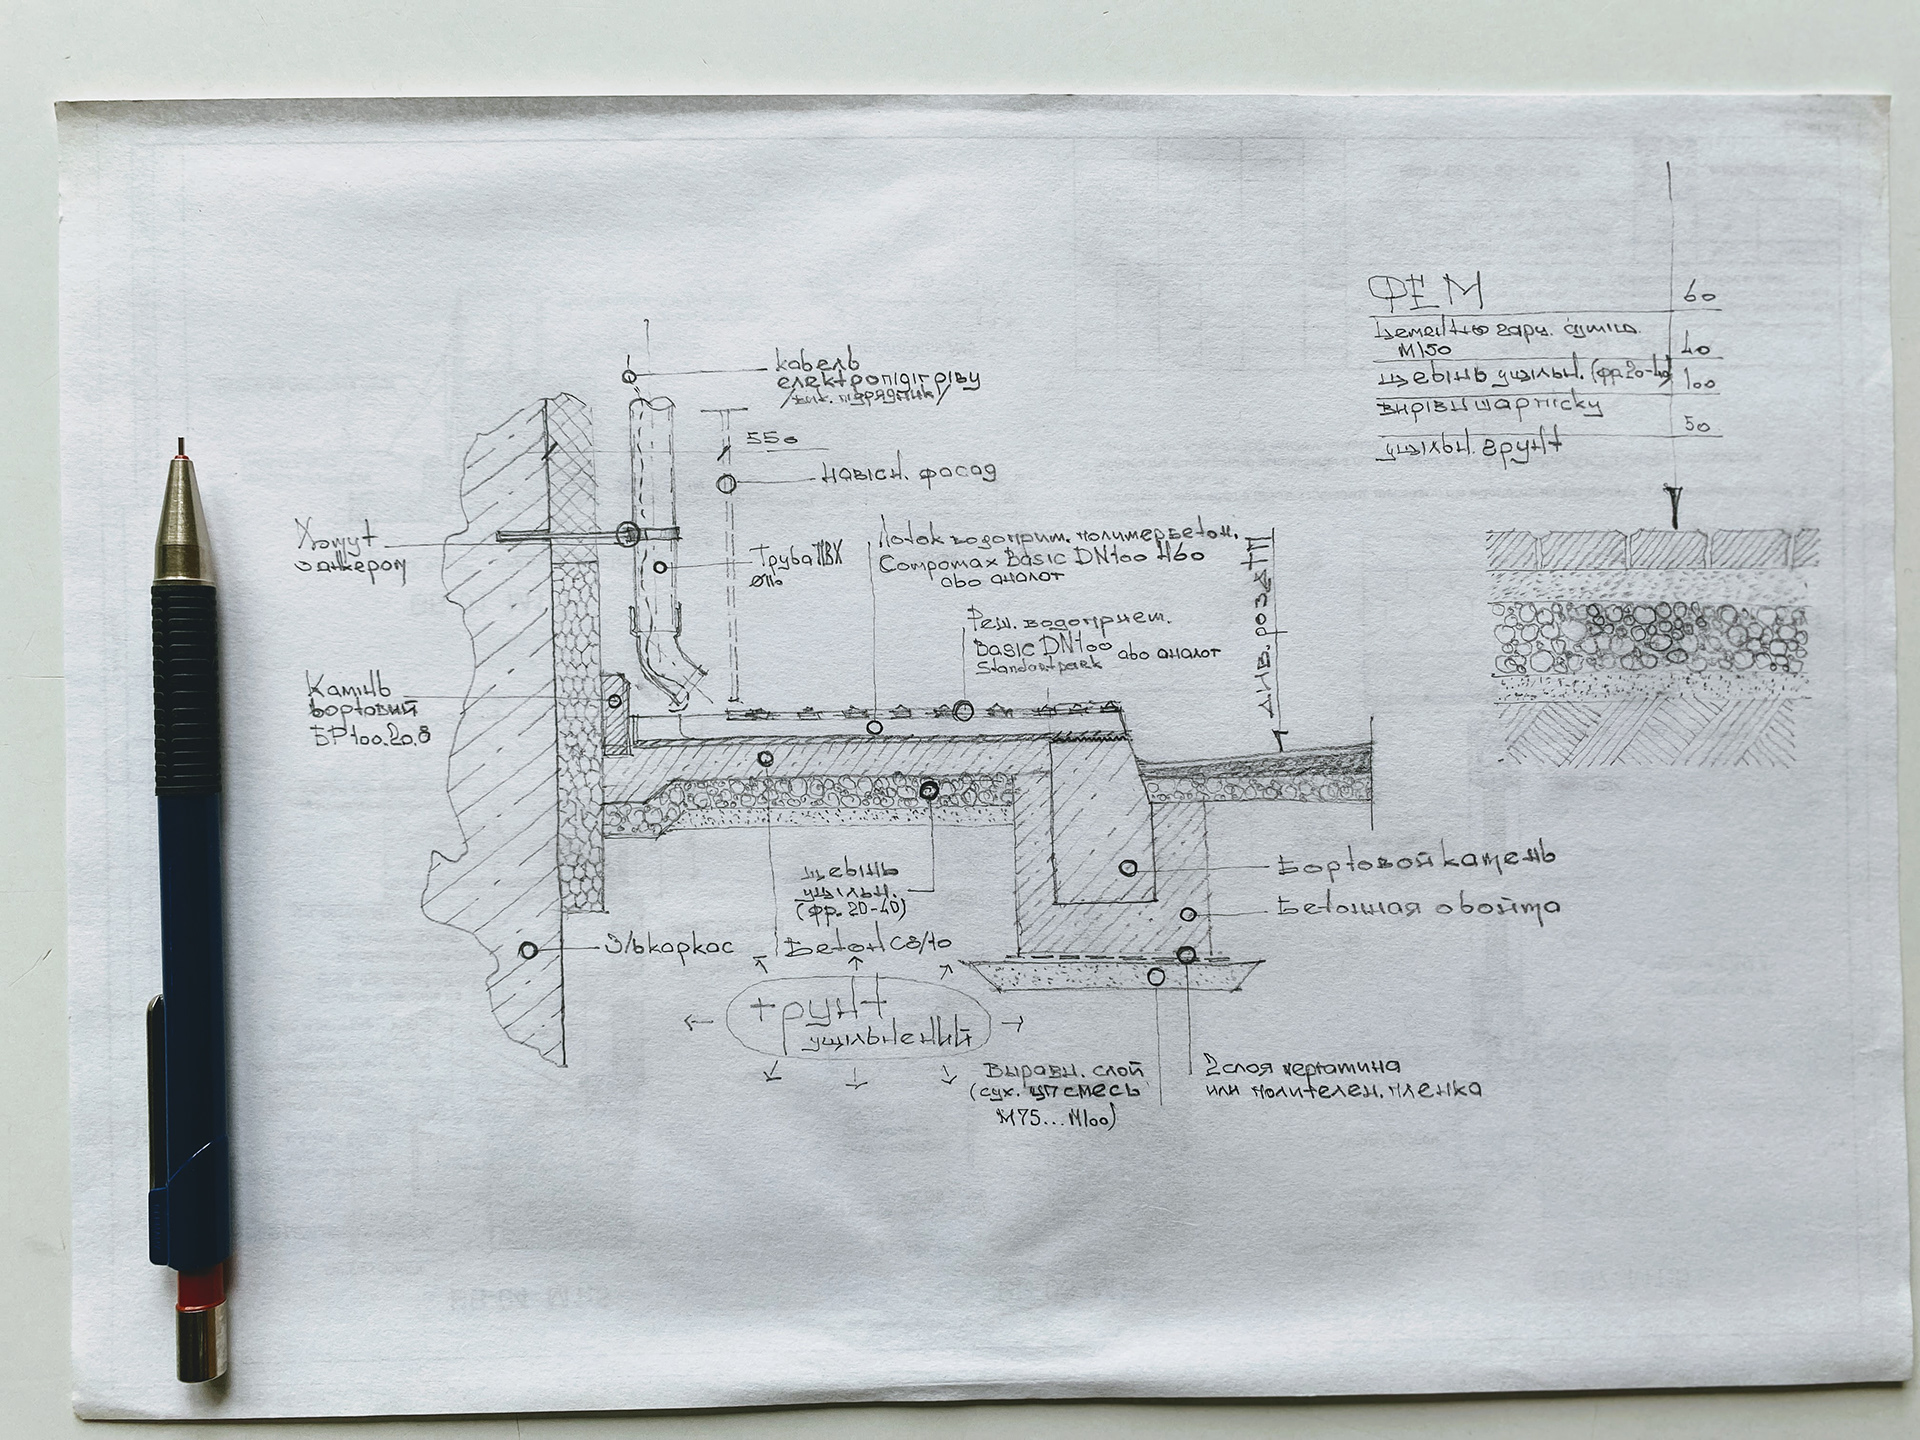 кабель
електропідігріву
/вик. підрядник/
550
навісн. фасад
Хомут
з анкером
Труба ПВХ
ø110
Лоток водоприм. полимербетон.
Compomax Basic DN100 H60
або аналог
Реш. водоприем.
Basic DN100 або аналог
Standartpark
див. розд. ГП
Камінь
бортовий
БР100.20.8
щебінь
ущільн.
(фр. 20-40)
З/б каркас
Бетон С8/10
грунт
ущільнений
Бортовой камень
Бетонная обойма
Выравн. слой
(сух. цп смесь
М75...М100)
2 слоя пергамина
или полиетелен. пленка
ФЕМ 60
цементно гарц. суміш
М150 40
щебінь ущільн. (фр 20-40) 100
вирівн шар піску 50
ущільн. грунт